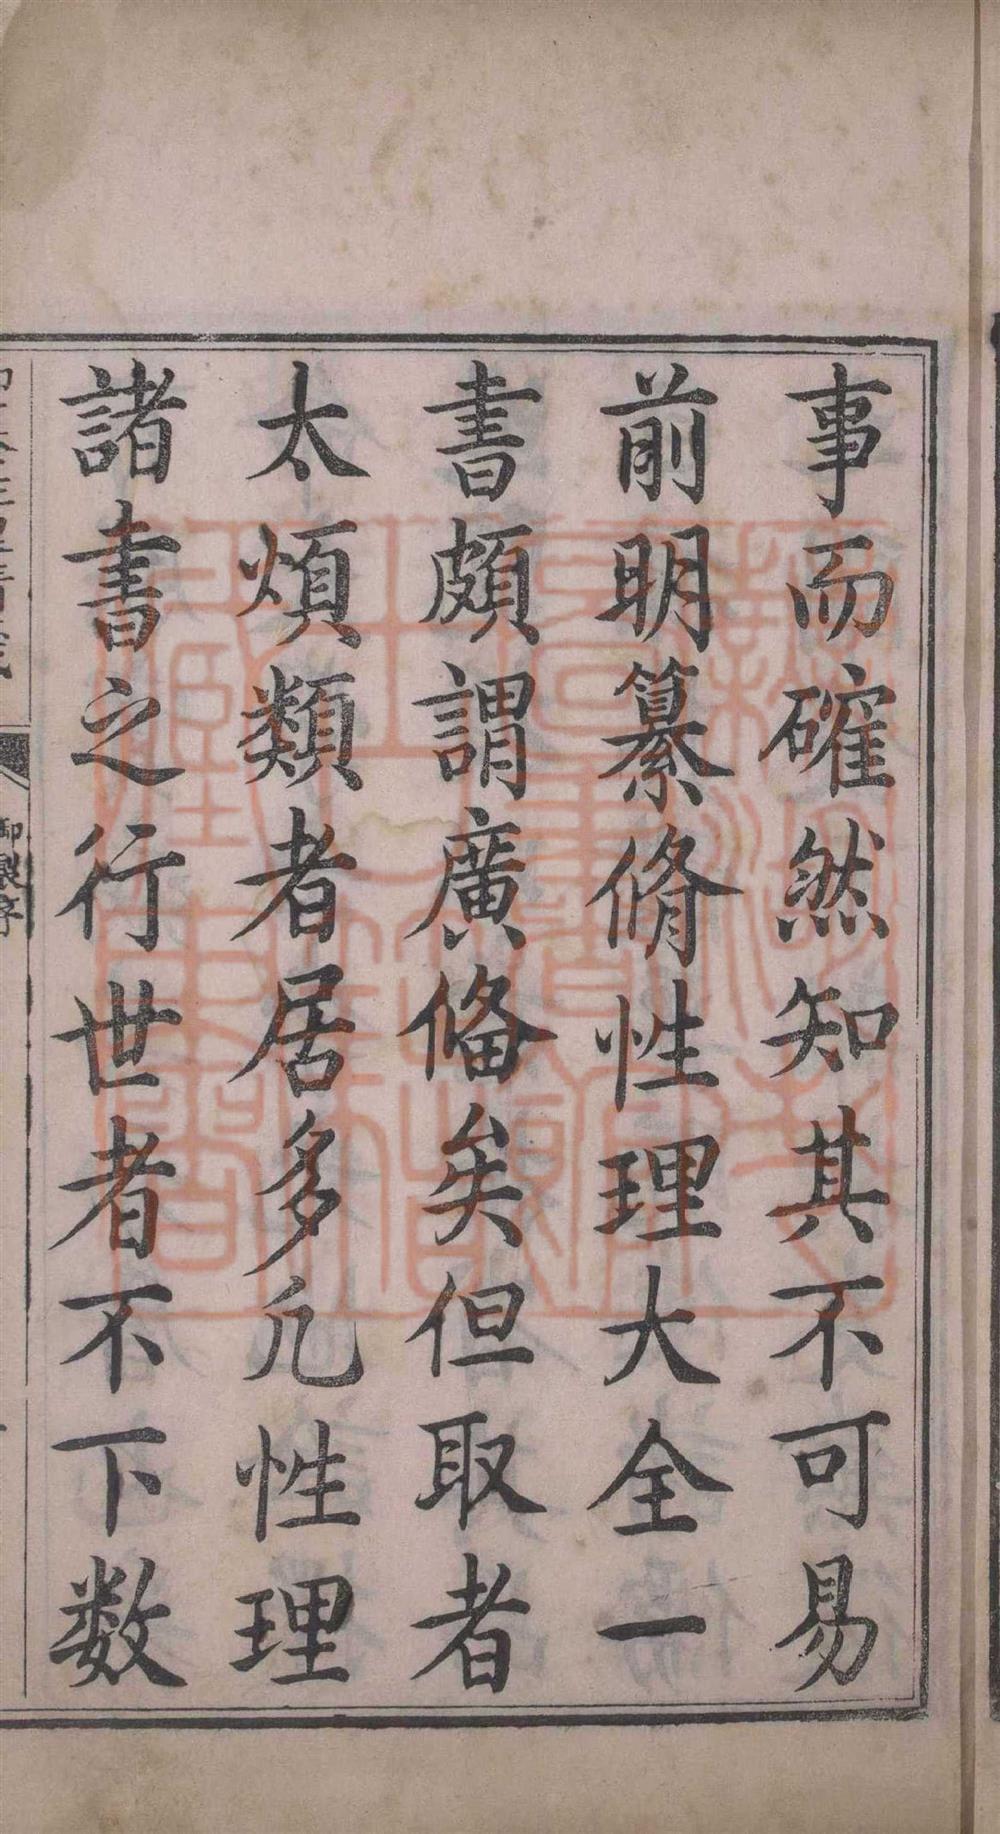 事而確然知其不可易
前明纂脩性理大全一
書頗謂廣備矣但取者
太煩類者居多凡性理
諸書之行世者不下数
御製序